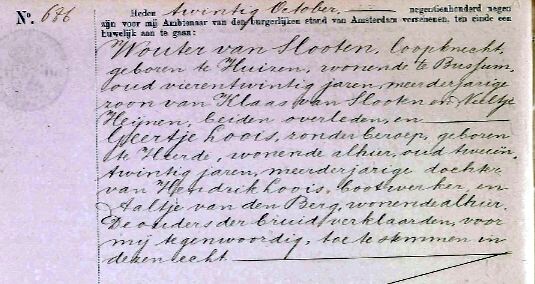 Nº. 676
Heden twintig October, negentienhonderd negen
zijn voor mij Ambtenaar van den burgerlijken stand van Amsterdam verschenen, ten einde een
huwelijk aan te gaan:
Wouter van Slooten, loopknecht,
geboren te Huizen, wonende te Bussum,
oud vierentwintig jaren, meerderjarige
zoon van Klaas van Slooten en Neeltje
Heijnen, beiden overleden, en
Geertje Loois, zonder beroep, geboren
te Heerde, wonende alhier, oud tweeën
twintig jaren, meerderjarige dochter
van Hendrik Loois, bootwerker, en
Aaltje van den Berg, wonende alhier.
De ouders der bruid verklaarden, voor
mij tegenwoordig, toe te stemmen in
dezen echt.